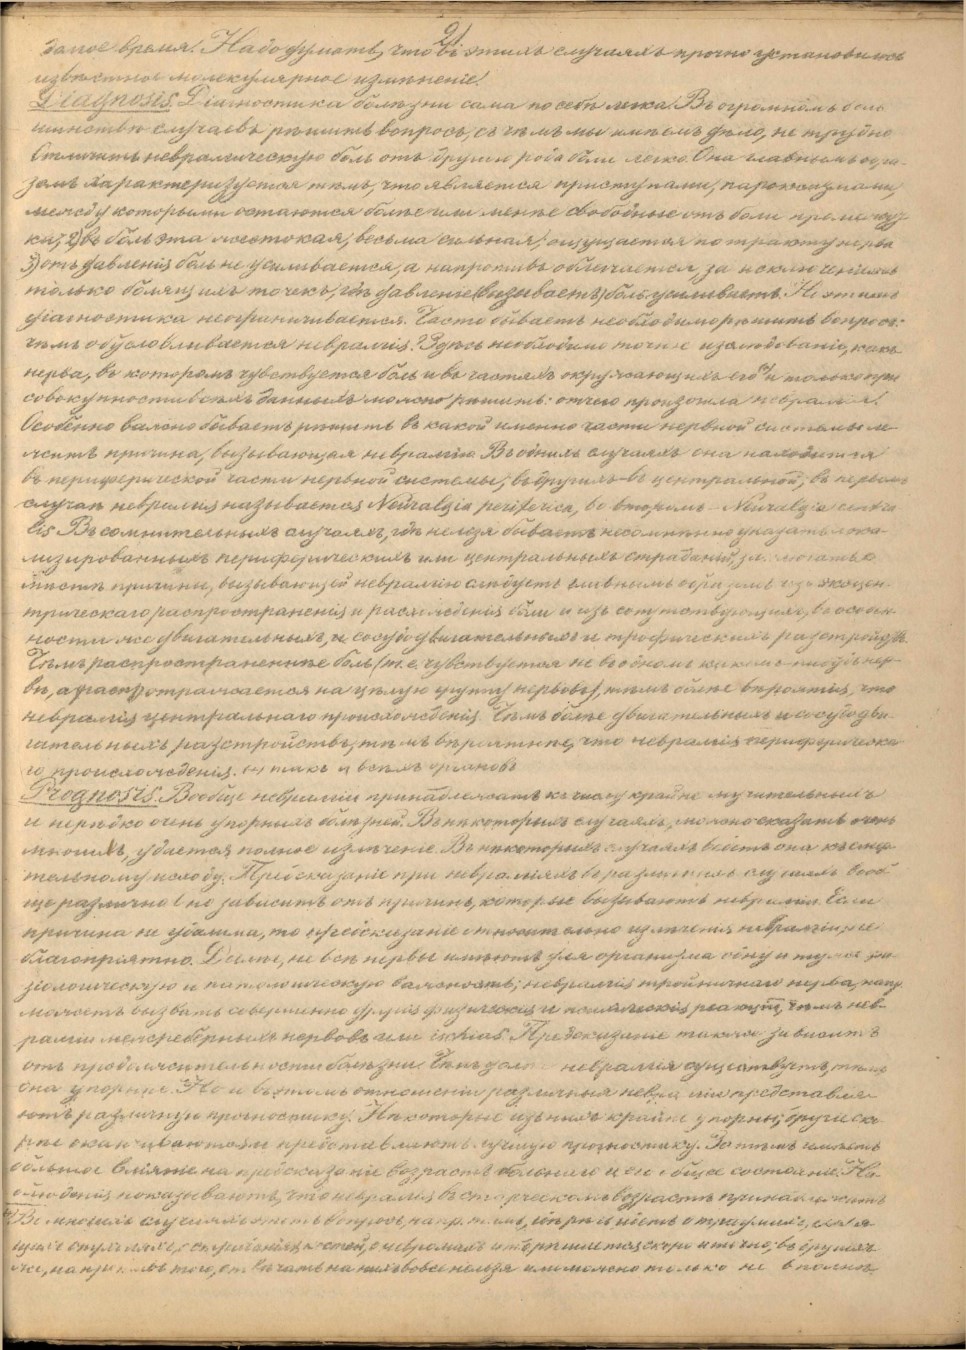 21
долгое время! Надо думать, что въ этихъ случаяхъ прочно установилось
извѣстное молекулярное измѣненіе!
Diagnosis. Діагностика болѣзни сама по себѣ легка. Въ огромномъ боль-
шинствѣ случаевъ рѣшить вопросъ, съ чѣмъ мы имѣемъ дѣло, не трудно
Отличить невралгическую боль отъ другого рода боли легко. Она главнымъ обра-
зомъ характеризуется тѣмъ, что является приступами, пароксизмами,
между которыми остаются болѣе или менѣе свободные отъ боли промежут-
ки; 2) боль эта жестокая, весьма сильная, ощущается по тракту нерва
3) отъ давленія боль не усиливается, а напротивъ облегчается, за исключеніемъ
только болящихъ точекъ, гдѣ давленіе (вызываетъ) боль усиливаетъ. Но этимъ
діагностика неограничивается. Часто бываетъ необходимо рѣшить вопросъ:
чѣмъ обусловливается невралгія? Здѣсь необходимо точное изслѣдованіе, какъ
нерва, въ которомъ чувствуется боль и въ частяхъ окружающихъ его и только при
совокупности всѣхъ данныхъ можно рѣшить: отчего произошла невралгія!
Особенно важно бываетъ рѣшить въ какой именно части нервной системы ле-
житъ причина, вызывающая невралгію. Въ однихъ случаяхъ она находится
въ периферической части нервной системы, въ другихъ въ центральной; въ первомъ
случаѣ невралгія называется Neuralgia periferica, во второмъ – Neuralgia centra
lis. Въ сомнительныхъ случаяхъ, гдѣ нельзя бываетъ несомнѣнно указать лока-
лизированныхъ периферическихъ или центральныхъ страданій,
мѣстѣ причины, вызывающей невралгію слѣдуетъ главнымъ образомъ изъ эксцен-
трическаго распространенія и расхожденія боли и изъ сопутствующихъ, въ особен-
ности же двигательныхъ, и сосудодвигательныхъ и трофическихъ разстройствъ.
Чѣмъ распространеннѣе боль (т.е. чувствуется не въ одномъ какомъ-нибудь нер-
вѣ, а отражается на цѣлую группу нервовъ), тѣмъ болѣе вѣроятія, что
невралгія центральнаго происхожденія. Чѣмъ болѣе двигательныхъ и сосудодви-
гательныхъ разстройствъ, тѣмъ вѣроятнѣе, что невралгія периферическа-
го происхожденія.
Prognosis. Вообще невралгіи принадлежатъ къ числу крайне мучительныхъ
и нерѣдко очень упорныхъ болѣзней. Въ нѣкоторыхъ случаяхъ, можно сказать очень
многихъ, удается полное излѣченіе. Въ нѣкоторыхъ случаяхъ ведетъ она къ смер-
тельному исходу. Предсказаніе при невралгіяхъ въ различныхъ случаяхъ вооб-
ще различно и но зависитъ отъ причинъ, которыя вызываютъ невралгіи. Если
причина не удалима, то предсказаніе относительно излѣченія невралгіи не
благопріятно. Далѣе, не всѣ нервы имѣютъ для организма одну и туже фи-
зіологическую и патологическую важность; невралгія тройничнаго нерва, напр.
можетъ вызвать совершенно другія физическія и психическія реакціи, чѣмъ нев-
ралгіи межреберныхъ нервовъ или ischias. Предсказаніе также зависитъ
отъ продолжительности болѣзни. Чѣмъ невралгія существуетъ, тѣмъ
она упорнѣе. Но и въ этомъ отношеніи различныя невралгіи представля-
ютъ различную прогностику. Нѣкоторые изъ нихъ крайне упорны, другіе ско-
рѣе оканчиваются и представляютъ лучшую прогностику. Затѣмъ имѣетъ
большое вліяніе на предсказаніе возрастъ больного и его общее состояніе. На-
блюденія показываютъ, что невралгія въ старческомъ возрастѣ принадлежитъ
Во многихъ случаяхъ этотъ вопросъ, напр.
скоро и точно; въ другихъ
же, на противъ того, отвѣчать на нихъ вовсе нельзя или можно только не вполнѣ